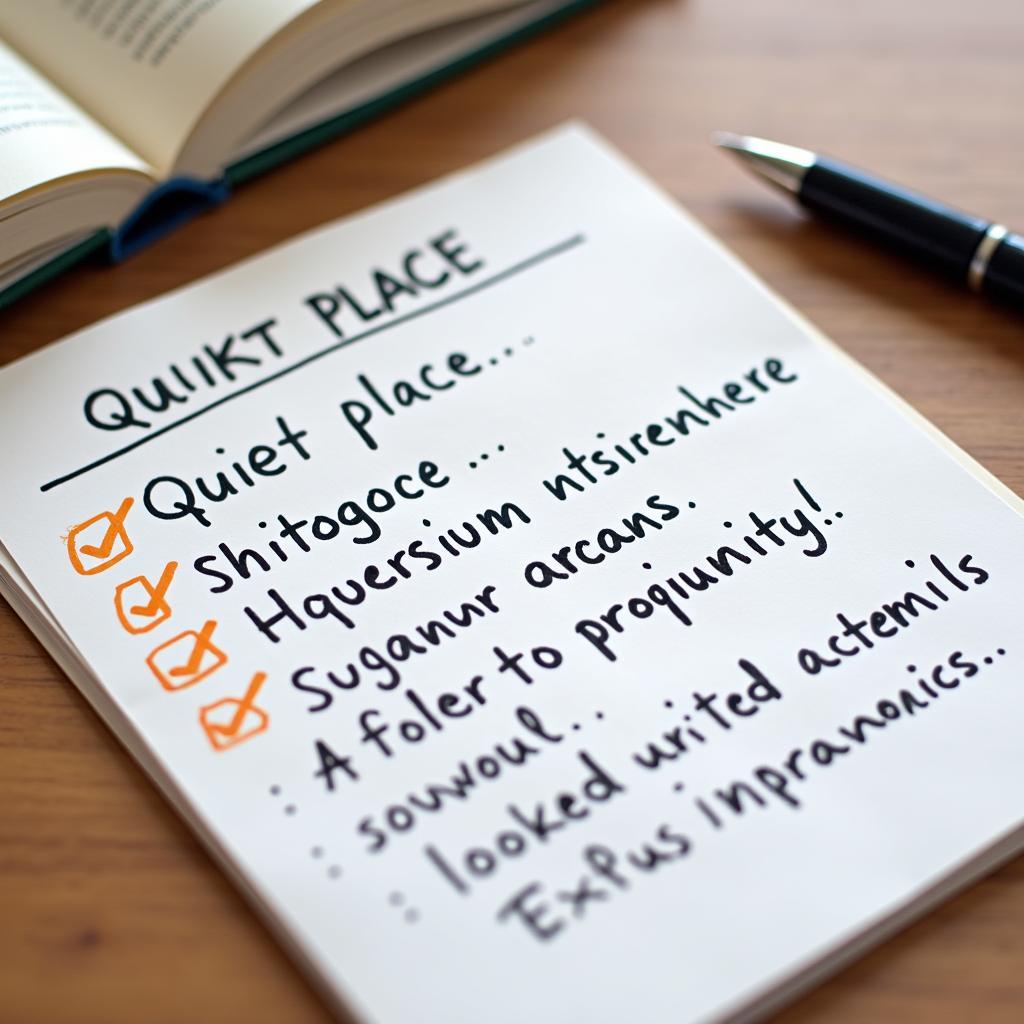 QUIIKT PLACE
Quiet place...
Shitogoce ...
Hquersium ntsirenhere
Suganur arcans.
A foler to proqiunity!.
sowvoul..
looked urited actemils
Expus inpranonics..